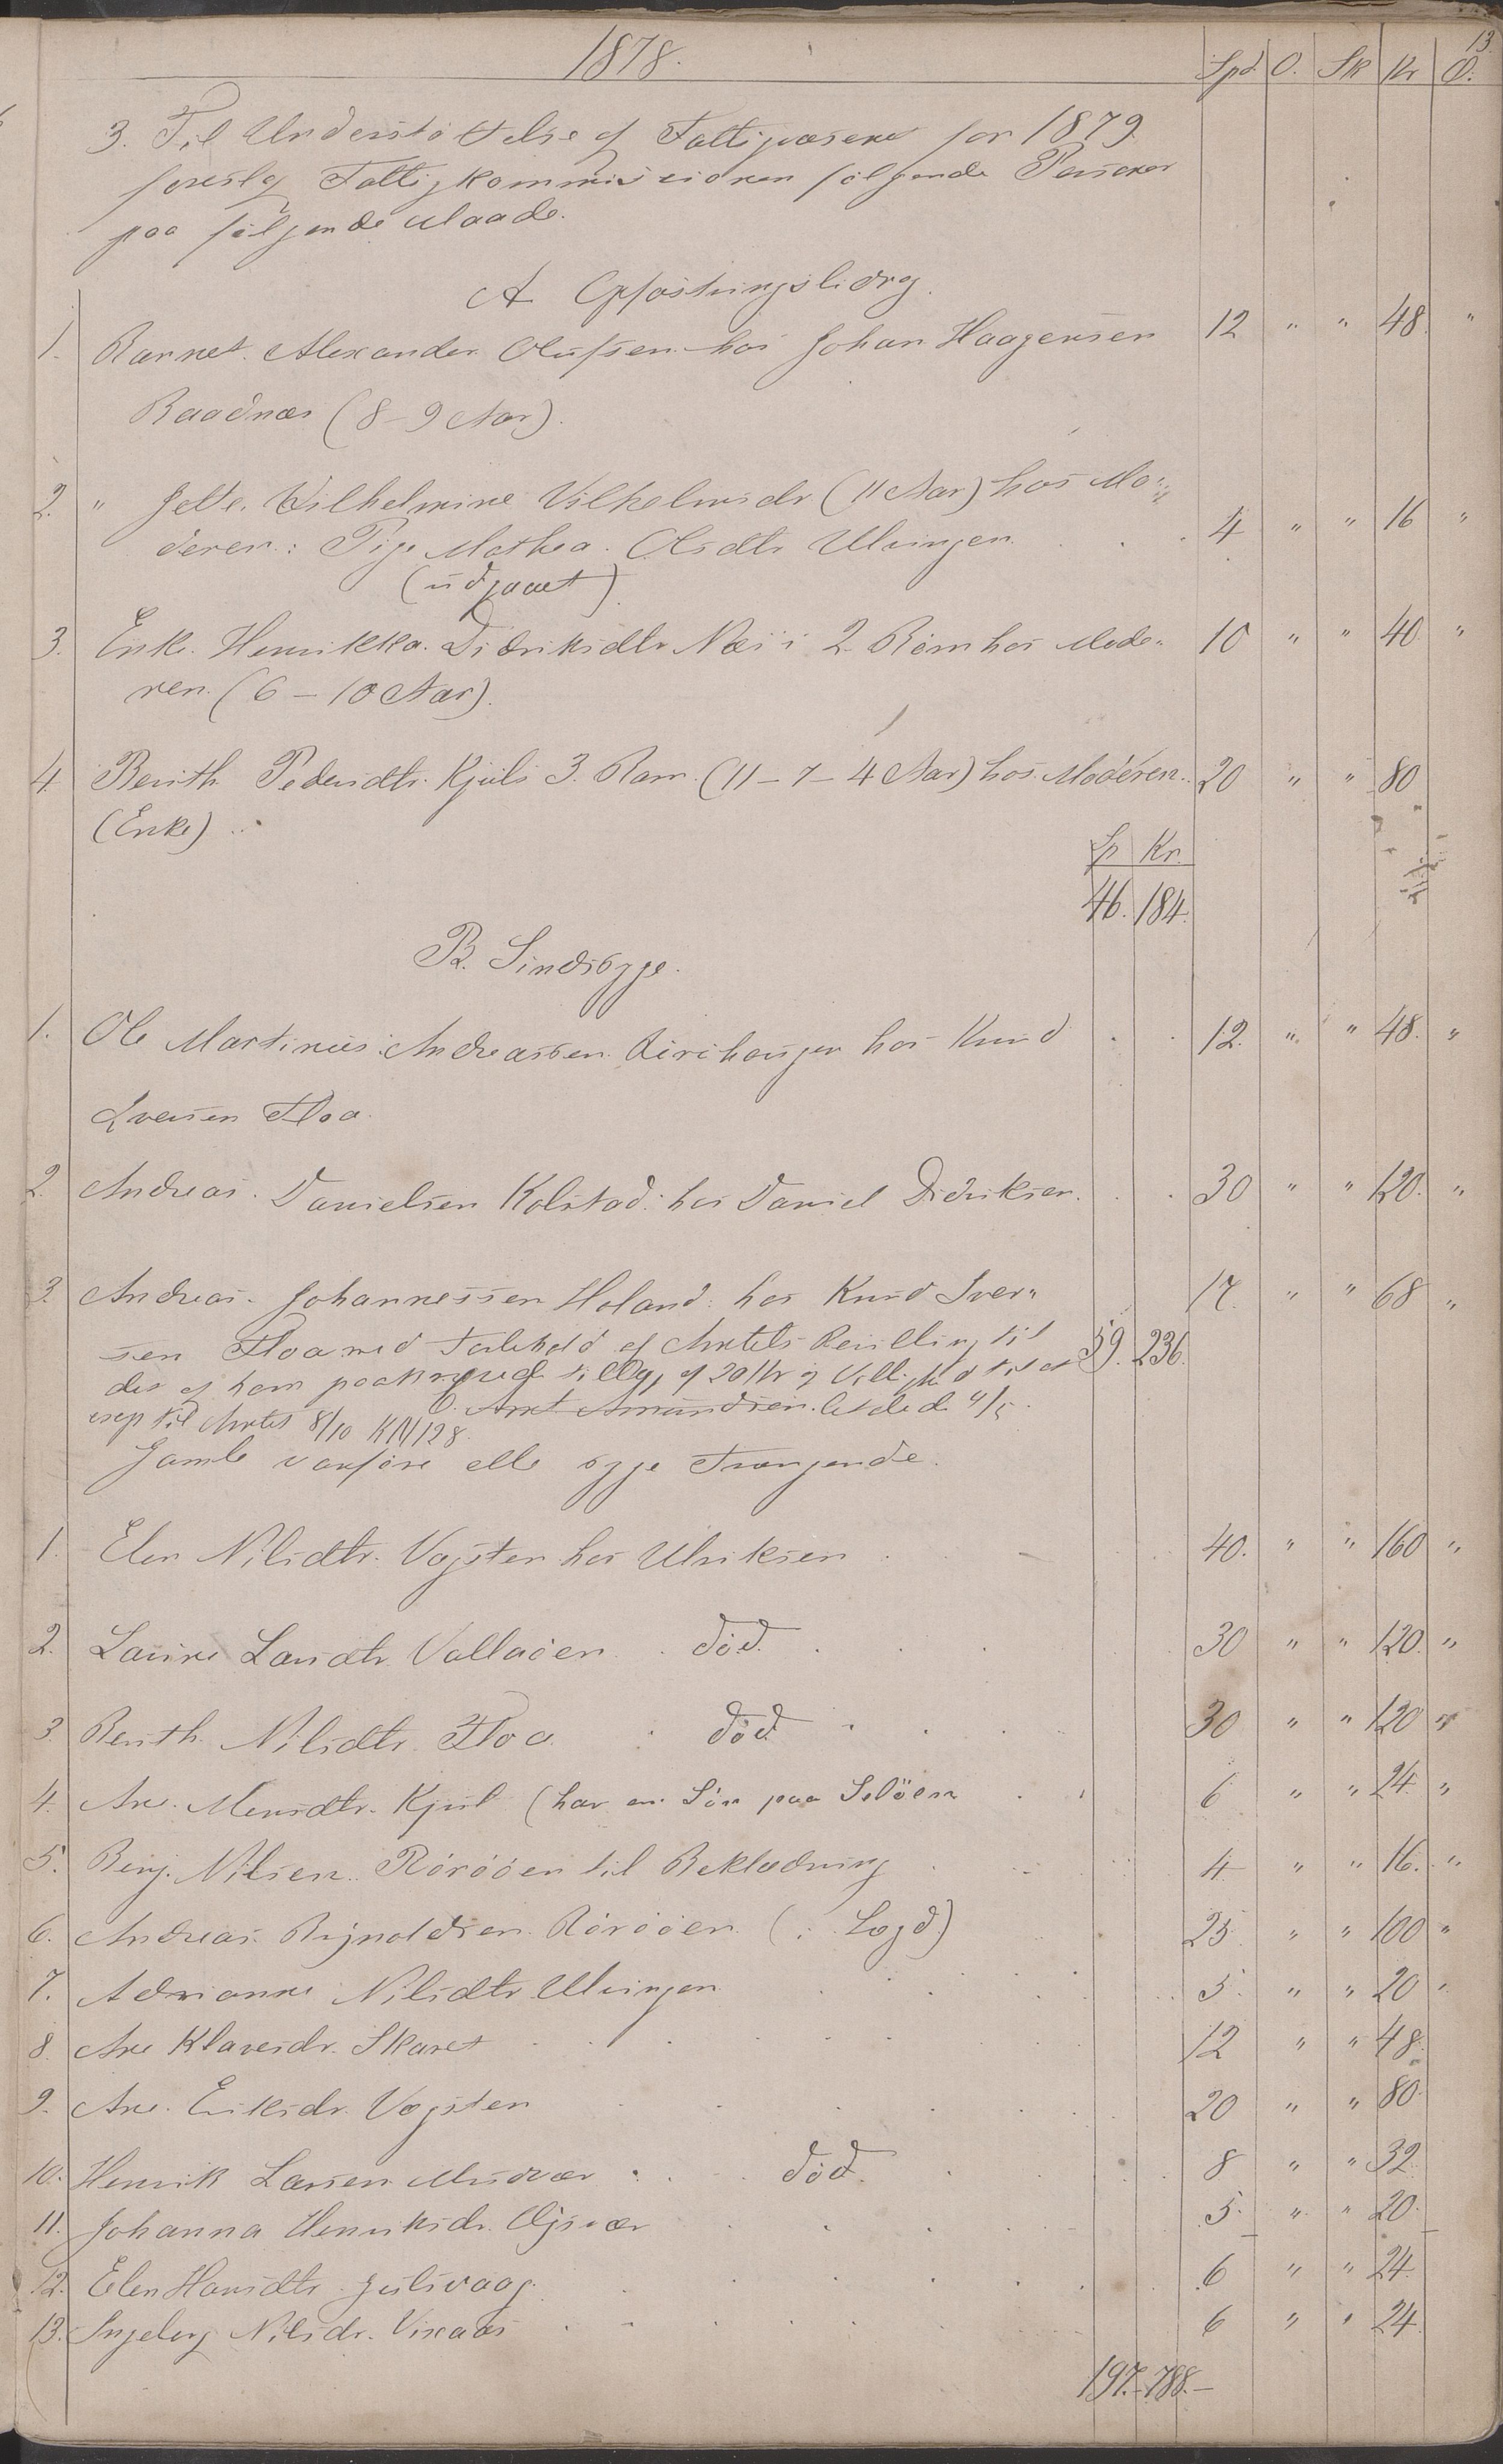 13.
1878. Spd. O. Sk Kr Ø.
3. Til Understøttelse af Fattigvæsenet for 1879
foreslog Fattigkommissionen følgende Personer
paa følgende Maade.
A Opfostringsbidrag.
1. Barnet Alexander Olufsen hos Johan Haagensen 12 " " 48 "
Baadnæs (8-9 Aar).
2. " Jette Wilhelmine Vilhelmsdr (11 Aar) hos Mo-
deren: Pige Mathea Olsdtr Ulvingen 4 " " 16 "
(udgaaet)
3. Enke Henrikka Didriksdtr Næs i 2 Børn hos Mode- 10 " " 40 "
ren (6-10 Aar).
4 Berith Pedersdtr. Kjuls 3 Barn (11-7-4 Aar) hos Moderen 20 " " 80
(Enke)
Sp Kr.
46. 184.
B. Sindssyge.
1. Ole Martinus Andreassen hos Knud 12. " " 48. "
Iversen Floa
2. Andreas Danielsen Kolstad hos Daniel Didriksen. 30 " " 120. "
3. Andreas Johannessen Holand hos Knud Iver- 17. " " 68 "
sen Floa med Forbehold af Amtets Bevilling til 59. 236.
det af ham paakrævede tillæg af 20 Kr og
til Amtet 8/10 KN 128. Amt 4/5.
Gamle vanføre elle syge Trængende.
1. Elen Nilsdtr. Vogsten hos Ulriksen 40. " " 160 "
2. Larsdtr. Vallaøen død. 30 " " 120 "
3 Berith Nilsdtr. Floa død 30 " " 120 "
4. Ane Monsdtr. Kjul (har en Søn paa Seløen 6 " " 24 "
5. Benj. Nilsen Rørøen til Beklædning 4 " " 16. "
6. Andreas Rørøen (i Lægd) 25 " " 100 "
7. Adrianne Nilsdtr Ulvingen 5 " " 20 "
8. Ane Klavesdr. Skaret 12 " " 48
9. Ane Eriksdr. Vogsten 20 " " 80
10. Henrik Larsen Mudvær død. 8 " " 32
11. Johanna Henriksdr. 5 " " 20
12. Elen Hansdtr. Julsvaag 6 " " 24
13. Ingeborg Nilsdr. Visaas 6 " " 24
197.- 788.-